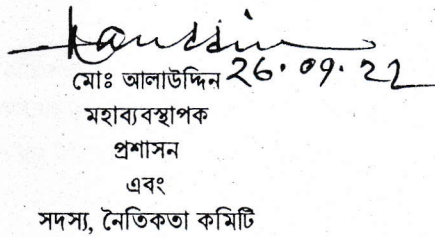 মোঃ আলাউদ্দিন 26.09.22
মহাব্যবস্থাপক
প্রশাসন
এবং
সদস্য, নৈতিকতা কমিটি